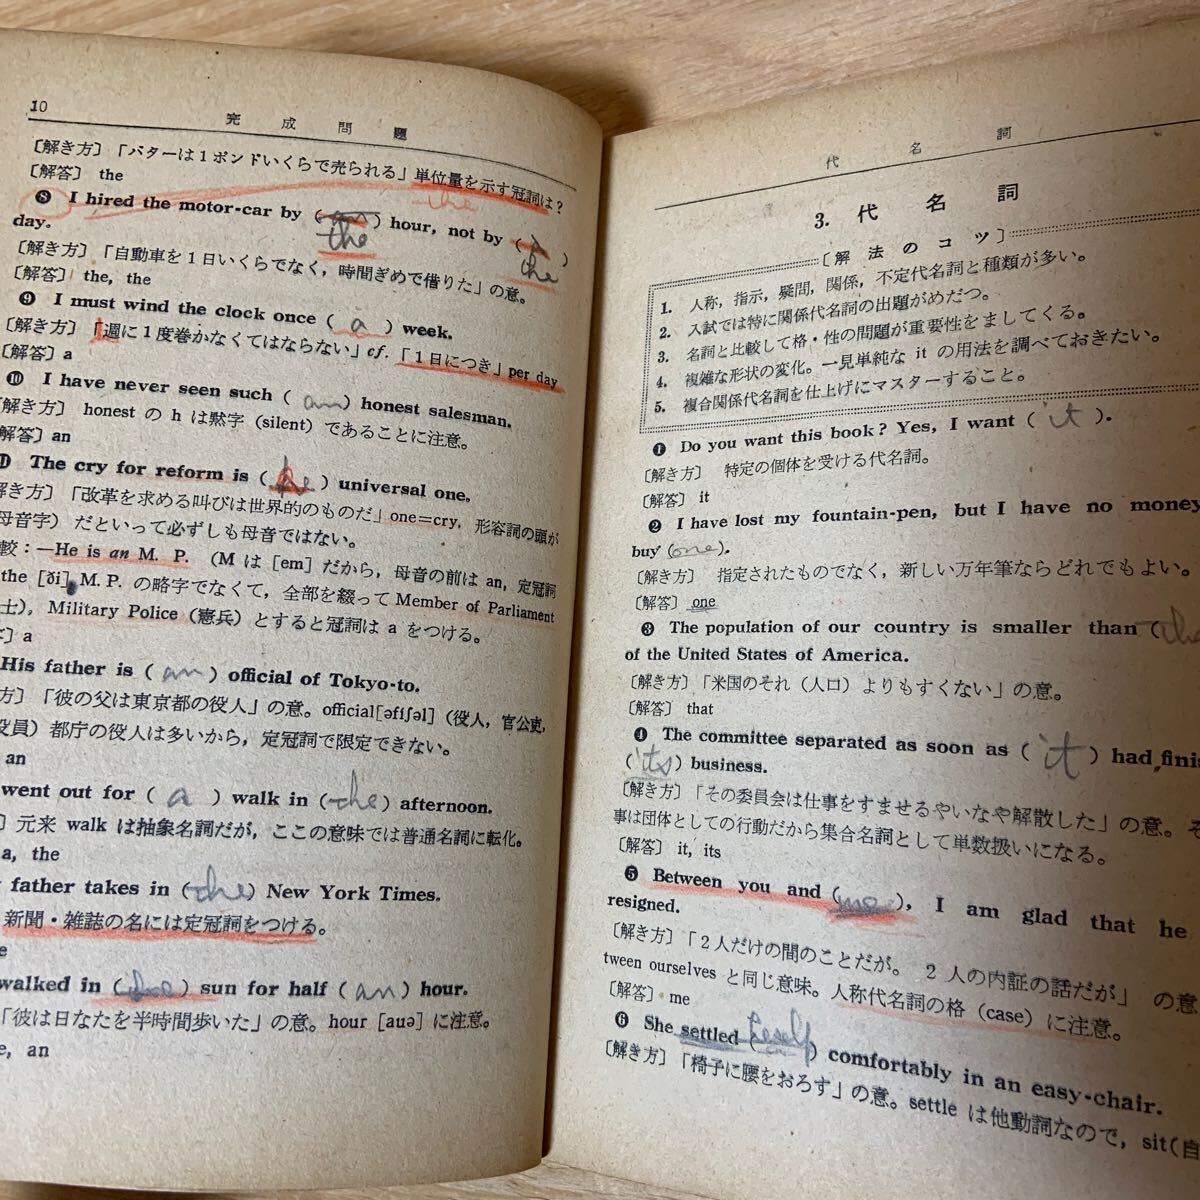 10
完成問題
〔解き方〕「バターは1ポンドいくらで売られる」単位量を示す冠詞は?
〔解答〕 the
the
❽ I hired the motor-car by ( ) hour, not by ( )
the
the
day.
〔解き方〕「自動車を1日いくらでなく,時間ぎめで借りた」の意。
〔解答〕 the, the
❾ I must wind the clock once ( a ) week.
〔解き方〕「週に1度巻かなくてはならない」cf.「1日につき」per day
〔解答〕 a
❿ I have never seen such ( an ) honest salesman.
解き方〕 honest の h は黙字 (silent) であることに注意。
解答〕 an
⓫ The cry for reform is ( ) universal one.
解き方〕「改革を求める叫びは世界的のものだ」one=cry, 形容詞の頭が
母音字) だといって必ずしも母音ではない。
較:—He is an M. P. (M は [em] だから, 母音の前は an, 定冠詞
the [ði] M. P. の略字でなくて, 全部を綴って Member of Parliament
士), Military Police (憲兵) とすると冠詞は a をつける。
〕 a
His father is ( an ) official of Tokyo-to.
方〕「彼の父は東京都の役人」の意。official[əfiʃəl] (役人, 官公吏,
役員) 都庁の役人は多いから, 定冠詞で限定できない。
an
went out for ( a ) walk in ( the ) afternoon.
〕元来 walk は抽象名詞だが, ここの意味では普通名詞に転化。
a, the
father takes in ( the ) New York Times.
新聞・雑誌の名には定冠詞をつける。
e
walked in ( the ) sun for half ( an ) hour.
「彼は日なたを半時間歩いた」の意。hour [auə] に注意。
e, an
代名詞
3. 代名詞
〔解法のコツ〕
1. 人称, 指示, 疑問, 関係, 不定代名詞と種類が多い。
2. 入試では特に関係代名詞の出題がめだつ。
3. 名詞と比較して格・性の問題が重要性をましてくる。
4. 複雑な形状の変化。一見単純な it の用法を調べておきたい。
5. 複合関係代名詞を仕上げにマスターすること。
❶ Do you want this book? Yes, I want ( it ).
〔解き方〕 特定の個体を受ける代名詞。
〔解答〕 it
❷ I have lost my fountain-pen, but I have no money
buy ( one ).
〔解き方〕 指定されたものでなく, 新しい万年筆ならどれでもよい。
〔解答〕 one
❸ The population of our country is smaller than (
of the United States of America.
〔解き方〕「米国のそれ (人口) よりもすくない」の意。
〔解答〕 that
❹ The committee separated as soon as ( it ) had finis
( its ) business.
〔解き方〕「その委員会は仕事をすませるやいなや解散した」の意。そ
事は団体としての行動だから集合名詞として単数扱いになる。
〔解答〕 it, its
❺ Between you and ( me ), I am glad that he
resigned.
〔解き方〕「2人だけの間のことだが。 2人の内証の話だが」 の意
tween ourselves と同じ意味。人称代名詞の格 (case) に注意。
〔解答〕 me
❻ She settled ( ) comfortably in an easy-chair.
〔解き方〕「椅子に腰をおろす」の意。settle は他動詞なので, sit(自